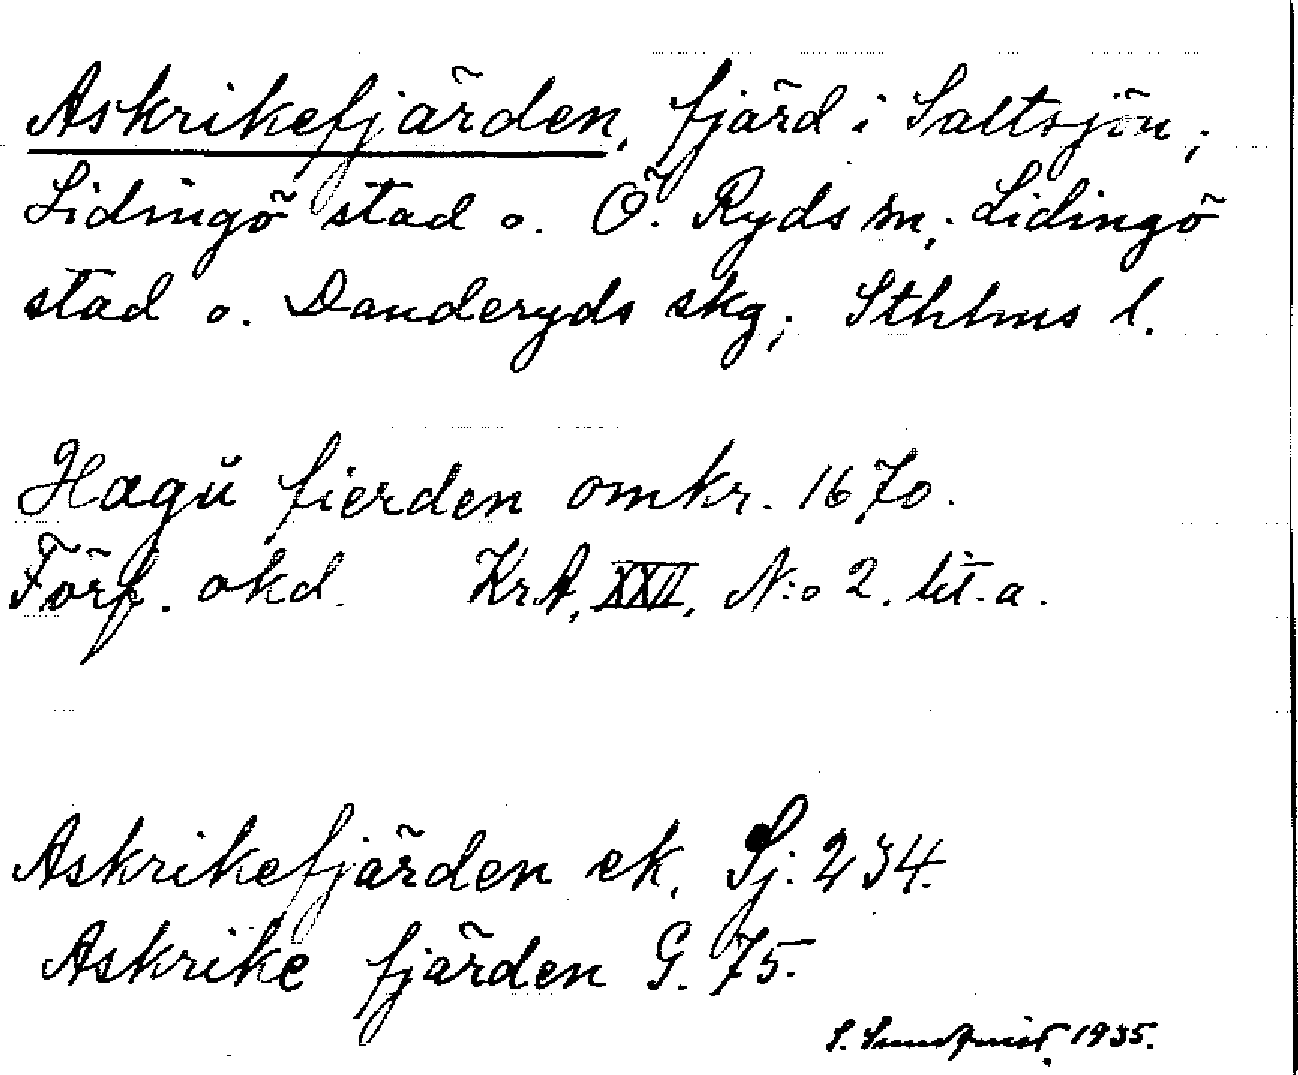 Askrikefjärden, fjärd i Saltsjön;
Lidingö stad o. Ö. Ryds sn.; Lidingö
stad o. Danderyds skg; Sthlms l.
Hægŭ fierden omkr. 1670.
Förf. okd. KrA, XXII, N:o 2. lit. a.
Askrikefjärden ek. Sj. 234.
Askrike fjärden G. 75.
S. Sundqvist. 1935.